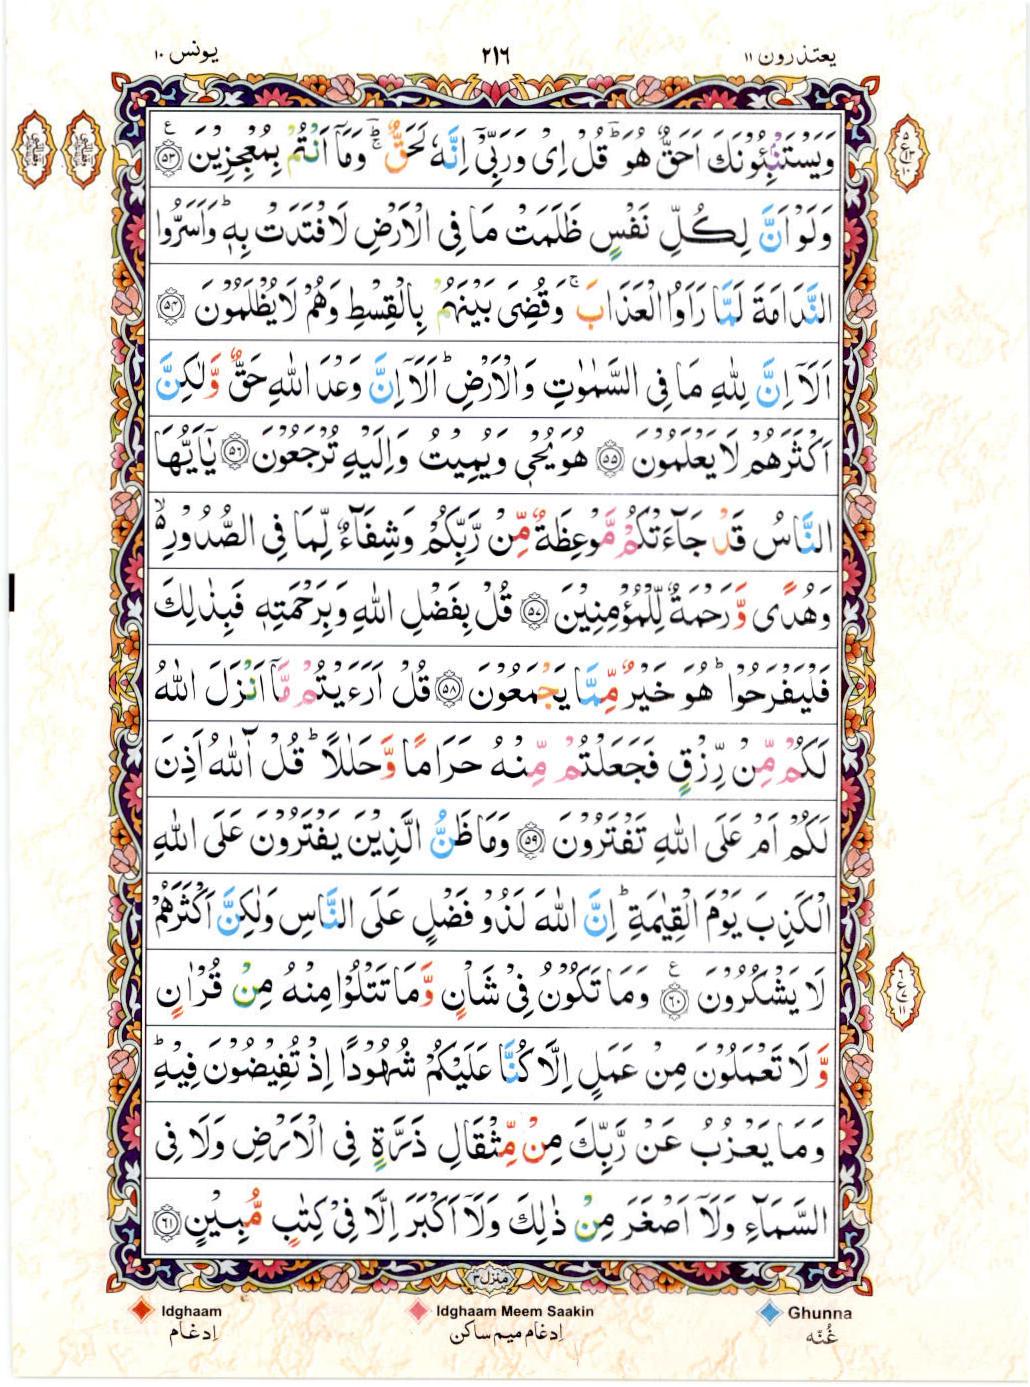 یعتذرون ۱۱ ۲۱۶ یونس ۱۰
وَيَسْتَنْۢبِـُٔوْنَكَ اَحَقٌّ هُوَ ؕ قُلْ اِیْ وَرَبِّیْۤ اِنَّهٗ لَحَقٌّ ؔؕ وَمَاۤ اَنْتُمْ بِمُعْجِزِيْنَ ﴿۵۳﴾ ع
وَلَوْ اَنَّ لِكُلِّ نَفْسٍ ظَلَمَتْ مَا فِی الْاَرْضِ لَافْتَدَتْ بِهٖ ؕ وَاَسَرُّوا
النَّدَامَةَ لَمَّا رَاَوُا الْعَذَابَ ۚ وَقُضِیَ بَيْنَهُمْ بِالْقِسْطِ وَهُمْ لَا يُظْلَمُوْنَ ﴿۵۴﴾
اَلَاۤ اِنَّ لِلّٰهِ مَا فِی السَّمٰوٰتِ وَالْاَرْضِ ؕ اَلَاۤ اِنَّ وَعْدَ اللّٰهِ حَقٌّ وَّلٰكِنَّ
اَكْثَرَهُمْ لَا يَعْلَمُوْنَ ﴿۵۵﴾ هُوَ يُحْیٖ وَيُمِيْتُ وَاِلَيْهِ تُرْجَعُوْنَ ﴿۵۶﴾ يٰۤاَيُّهَا
النَّاسُ قَدْ جَآءَتْكُمْ مَّوْعِظَةٌ مِّنْ رَّبِّكُمْ وَشِفَآءٌ لِّمَا فِی الصُّدُوْرِ ۙ۬
وَهُدًی وَّرَحْمَةٌ لِّلْمُؤْمِنِيْنَ ﴿۵۷﴾ قُلْ بِفَضْلِ اللّٰهِ وَبِرَحْمَتِهٖ فَبِذٰلِكَ
فَلْيَفْرَحُوْا ؕ هُوَ خَيْرٌ مِّمَّا يَجْمَعُوْنَ ﴿۵۸﴾ قُلْ اَرَءَيْتُمْ مَّاۤ اَنْزَلَ اللّٰهُ
لَكُمْ مِّنْ رِّزْقٍ فَجَعَلْتُمْ مِّنْهُ حَرَامًا وَّحَلٰلًا ؕ قُلْ آٰللّٰهُ اَذِنَ
لَكُمْ اَمْ عَلَی اللّٰهِ تَفْتَرُوْنَ ﴿۵۹﴾ وَمَا ظَنُّ الَّذِيْنَ يَفْتَرُوْنَ عَلَی اللّٰهِ
الْكَذِبَ يَوْمَ الْقِيٰمَةِ ؕ اِنَّ اللّٰهَ لَذُوْ فَضْلٍ عَلَی النَّاسِ وَلٰكِنَّ اَكْثَرَهُمْ
لَا يَشْكُرُوْنَ ﴿۶۰﴾ ع وَمَا تَكُوْنُ فِیْ شَاْنٍ وَّمَا تَتْلُوْا مِنْهُ مِنْ قُرْاٰنٍ
وَّلَا تَعْمَلُوْنَ مِنْ عَمَلٍ اِلَّا كُنَّا عَلَيْكُمْ شُهُوْدًا اِذْ تُفِيْضُوْنَ فِيْهِ ؕ
وَمَا يَعْزُبُ عَنْ رَّبِّكَ مِنْ مِّثْقَالِ ذَرَّةٍ فِی الْاَرْضِ وَلَا فِی
السَّمَآءِ وَلَاۤ اَصْغَرَ مِنْ ذٰلِكَ وَلَاۤ اَكْبَرَ اِلَّا فِیْ كِتٰبٍ مُّبِيْنٍ ﴿۶۱﴾
منزل ۳
Idghaam Idghaam Meem Saakin Ghunna
اِدغام اِدغام میم ساکن غُنّه